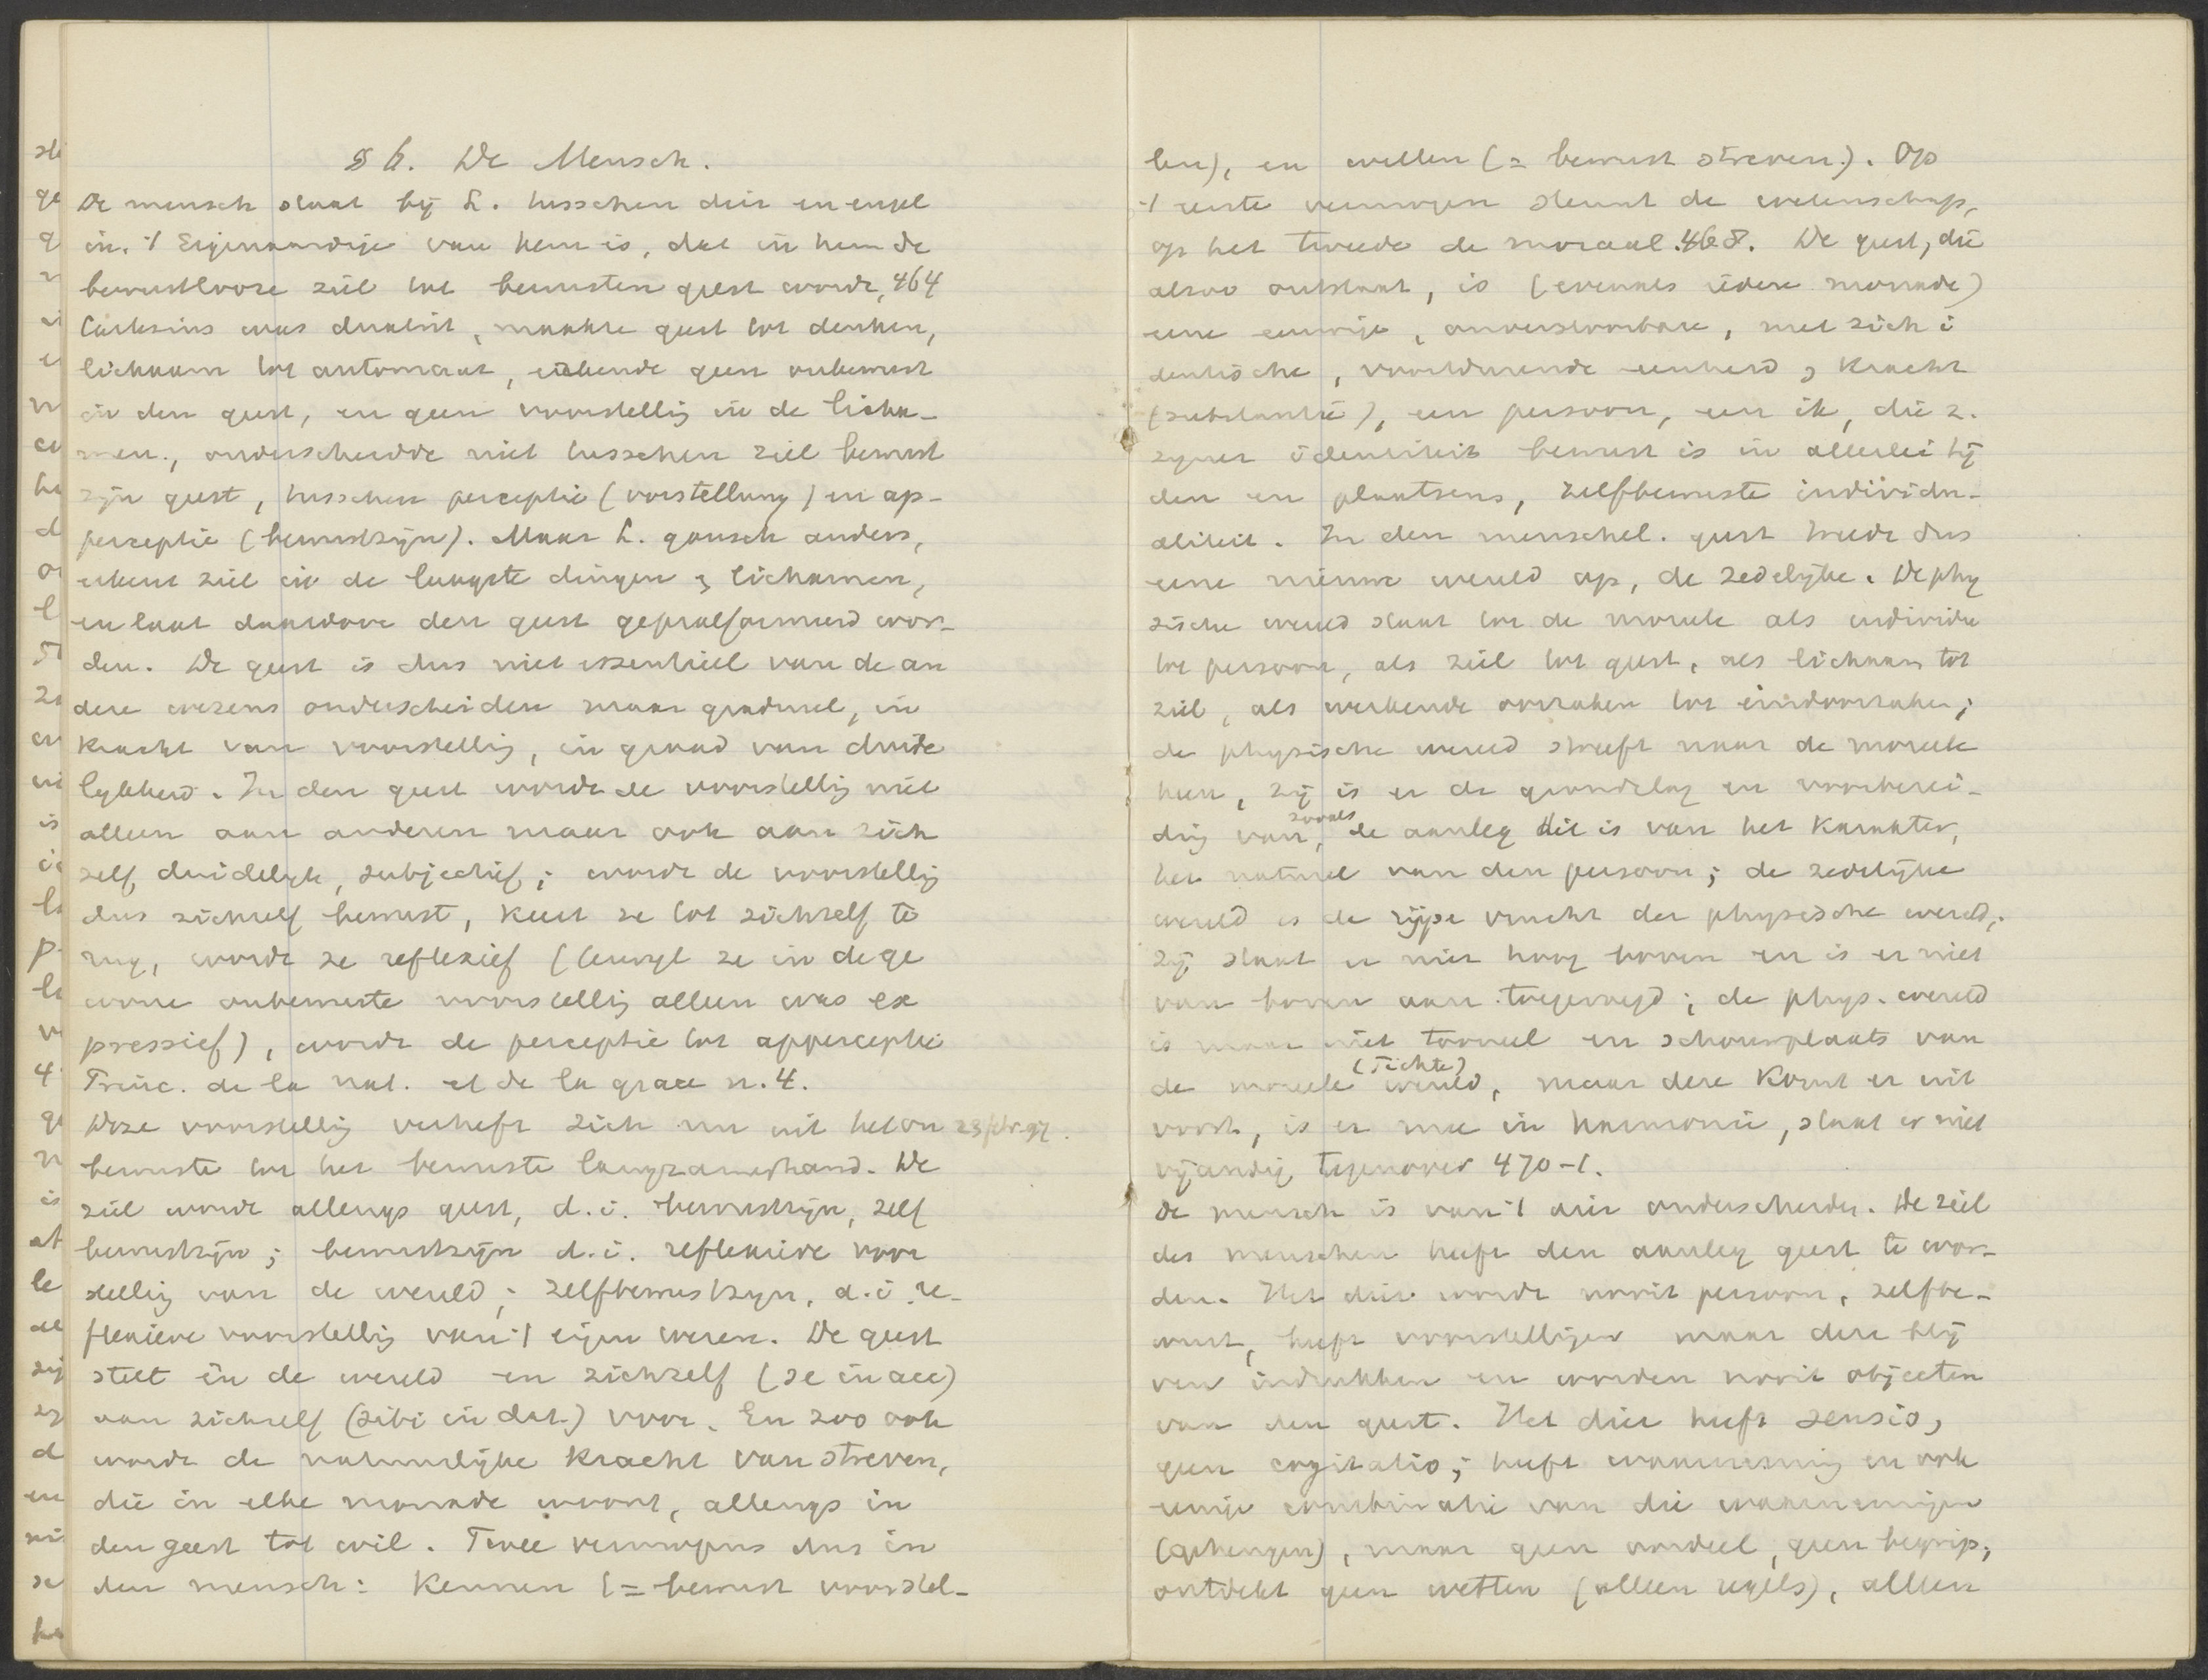 § 6. De Mensch.
De mensch staat bij L. tusschen dier en engel
in. 't Eigenaardige van hem is, dat in hem de
bewustlooze ziel tot bewusten geest wordt, 464
Cartesius was dualist, maakte geest tot denken,
lichaam tot automaat, erkende geen onbewust
in den geest, en geen voorstellig in de licha-
men., onderscheidde niet tusschen ziel bewust
zijn geest, tusschen perceptie (vorstellung) en ap-
perceptie (bewustzijn). Maar L. gansch anders,
erkent ziel in de laagste dingen & lichamen,
en laat daardoor den geest gepraeformeerd wor-
den. De geest is dus niet essentieel van de an
dere wezens onderscheiden maar gradueel, in
kracht van voorstellig, in graad van duide
lykheid. In den geest wordt de voorstellig niet
alleen aan anderen maar ook aan zich
zelf duidelyk, subjectief; wordt de voorstellig
dus zichzelf bewust, keert ze tot zichzelf te
rug, wordt ze reflexief (terwyl ze in de ge
wone onbewuste voorstellig alleen was ex
pressief), wordt de perceptie tot apperceptie
Princ. de la nat. et de la grace n. 4.
Deze voorstellig verheft zich nu uit het on 23 febr. 97.
bewuste tot het bewuste langzamerhand. De
ziel wordt allengs geest, d.i. bewustzijn, zelf
bewustzijn; bewustzijn d.i. reflexieve voor
stellig van de wereld; zelfbewustzyn, d.i. re-
flexieve voorstellig van 't eigen wezen. De geest
stelt in de wereld en zichzelf (se in acc)
aan zichzelf (sibi in dat.) voor. En zoo ook
wordt de natuurlijke kracht van streven,
die in elke monade woont, allengs in
den geest tot wil. Twee vermogens dus in
den mensch: kennen (= bewust voorstel-
len), en willen (= bewust streven). Op
't eerste vermogen steunt de wetenschap,
op het tweede de moraal. 468. De geest, die
alzoo ontstaat, is (evenals iedere monade)
eene eeuwige, onverstoorbare, met zich i
dentische, voortdurende eenheid, kracht
(substantie), een persoon, een ik, die z.
zyner identiteit bewust is in allerlei tij
den en plaatsen, zelfbewuste individu-
aliteit. In den menschel. geest treedt dus
eene nieuwe wereld op, de zedelijke. De phy
sische wereld staat tot de moreele als individu
tot persoon, als ziel tot geest, als lichaam tot
ziel, als werkende oorzaken tot eindoorzaken;
de physische wereld streeft naar de moreele
heen, zij is er de grondslag en voorberei-
dig van, zooals de aanleg dit is van het karakter,
het naturel van den persoon; de zedelijke
wereld is de rijpe vrucht der physische wereld;
zij staat er niet hoog boven en is er niet
van boven aan toegevoegd; de phys. wereld
is maar niet tooneel en schouwplaats van
de moreele wereld (Fichte), maar deze komt er uit
voort, is er mee in harmonie, staat er niet
vijandig tegenover 470-1.
De mensch is van 't dier onderscheiden. De ziel
des menschen heeft den aanleg geest te wor-
den. Het dier wordt nooit persoon, zelfbe-
wust, heeft voorstelligen maar deze blij
ven indrukken en worden nooit objecten
van den geest. Het dier heeft sensio,
geen cogitatio; heeft waarneming en ook
eenige combinatie van die waarnemingen
(geheugen), maar geen oordeel, geen begrip;
ontdekt geen wetten (alleen regels), alleen